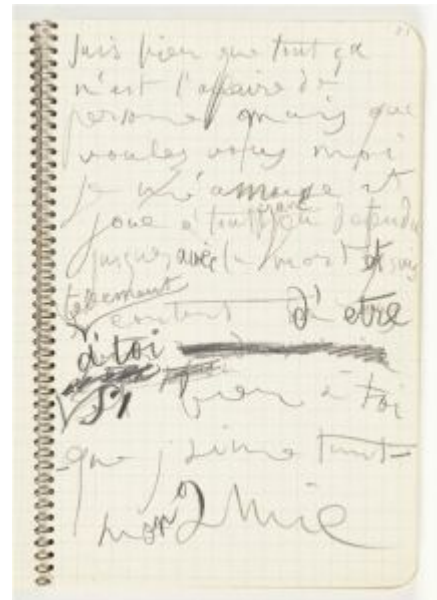 suis bien que tout ça
n'est l'affaire de
personne mais que
voulez vous moi
je m'amuse et
joue à tout
jusqu'avec la mort et suis
tellement
content d'être
à toi
si bien à toi
que j'aime tout
mon